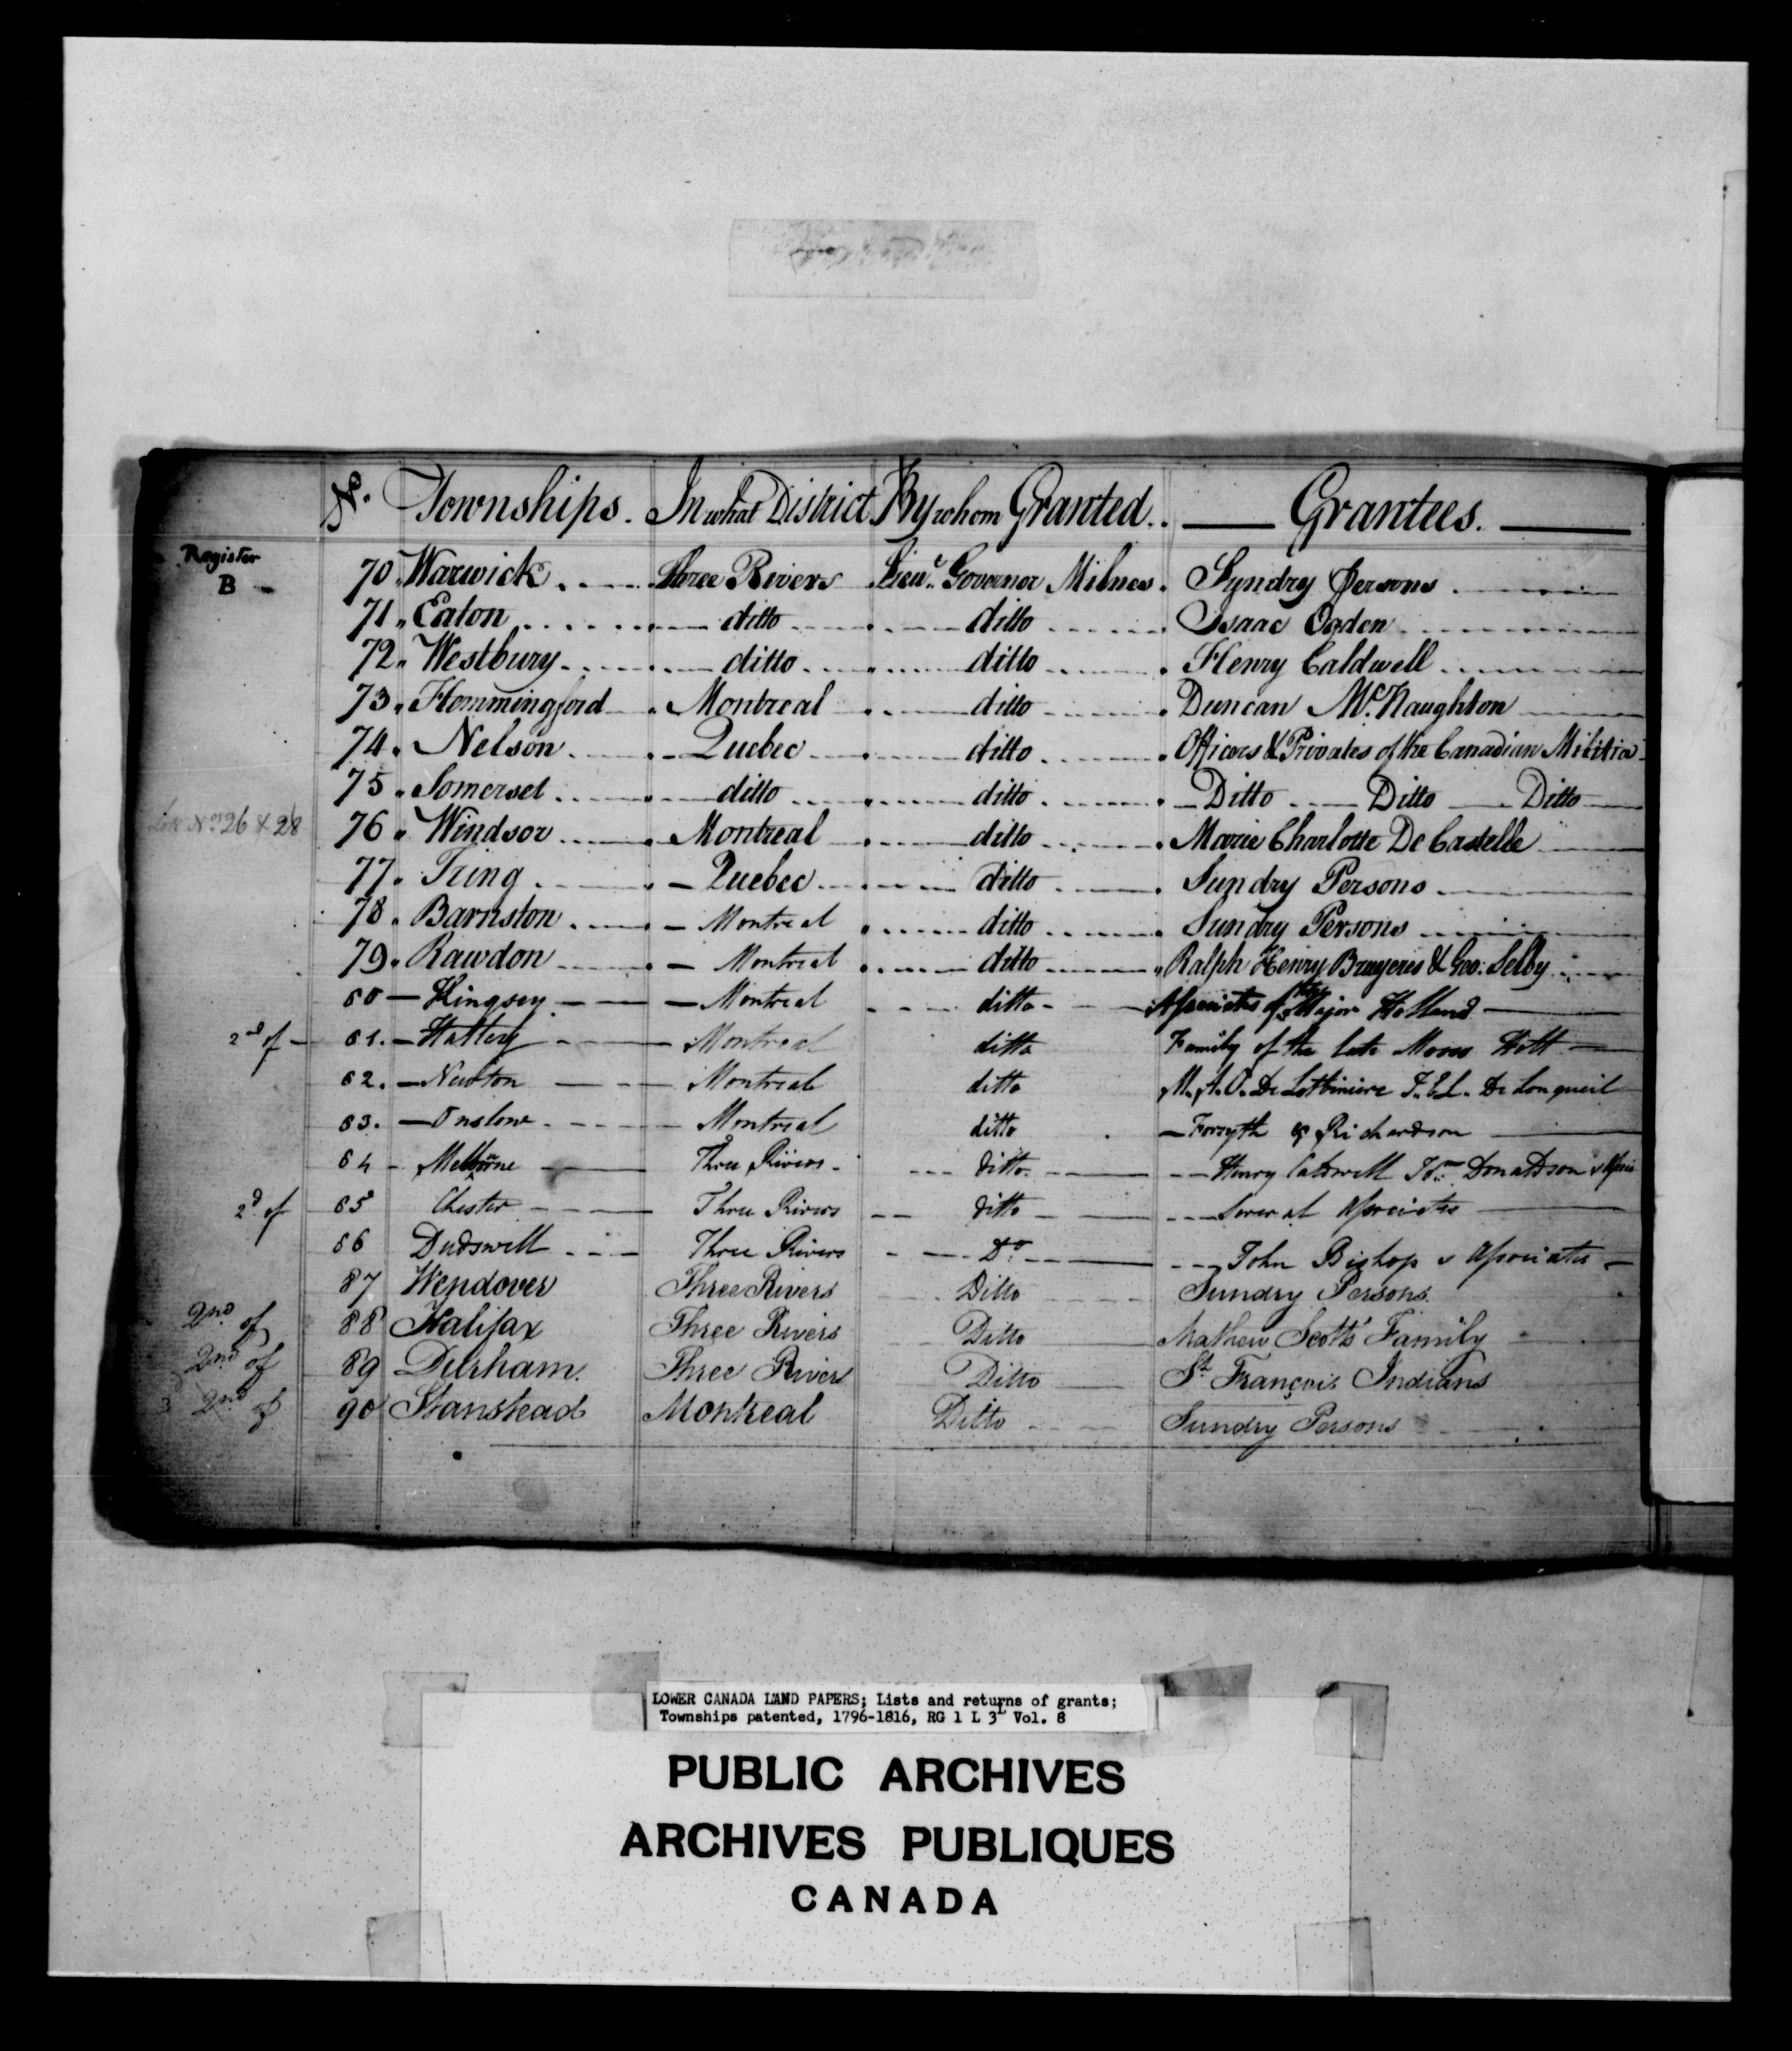 No. Townships. In what District By whom Granted. Grantees.
Register
B
70 Warwick Three Rivers Lieut. Governor Milnes. Sundry Persons
71 Eaton ditto ditto Isaac Ogden
72 Westbury ditto ditto Henry Caldwell
73 Hemmingford Montreal ditto Duncan McNaughton
74 Nelson Quebec ditto Officers & Privates of the Canadian Militia
75 Somerset ditto ditto Ditto Ditto Ditto
Lots Nos. 26 & 28 76 Windsor Montreal ditto Marie Charlotte De Castelle
77 Tring Quebec ditto Sundry Persons
78 Barnston Montreal ditto Sundry Persons
79 Rawdon Montreal ditto Ralph Henry Bruyeres & Geo: Selby
80 Kingsey Montreal ditto Associates of Major Holland
2nd of 81 Hatley Montreal ditto Family of the late Moses Holt
82 Newton Montreal ditto M. A. C. De Lotbiniere De Longueil
83 Onslow Montreal ditto Forsyth & Richardson
84 Melbourne Three Rivers ditto Henry Caldwell Donaldson & Asso
2d of 85 Chester Three Rivers ditto Several Associates
86 Dudswell Three Rivers Do. John Bishop & Associates
87 Wendover Three Rivers Ditto Sundry Persons
2nd of 88 Halifax Three Rivers Ditto Mathew Scotts' Family
2nd of 89 Durham. Three Rivers Ditto St. François Indians
3 2nd of 90 Stanstead Montreal Ditto Sundry Persons
LOWER CANADA LAND PAPERS; Lists and returns of grants;
Townships patented, 1796-1816, RG 1 L 3L Vol. 8
PUBLIC ARCHIVES
ARCHIVES PUBLIQUES
CANADA